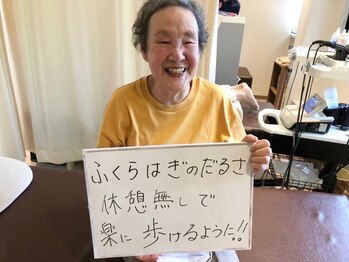 ふくらはぎのだるさ
休憩無しで
楽に歩けるように!!